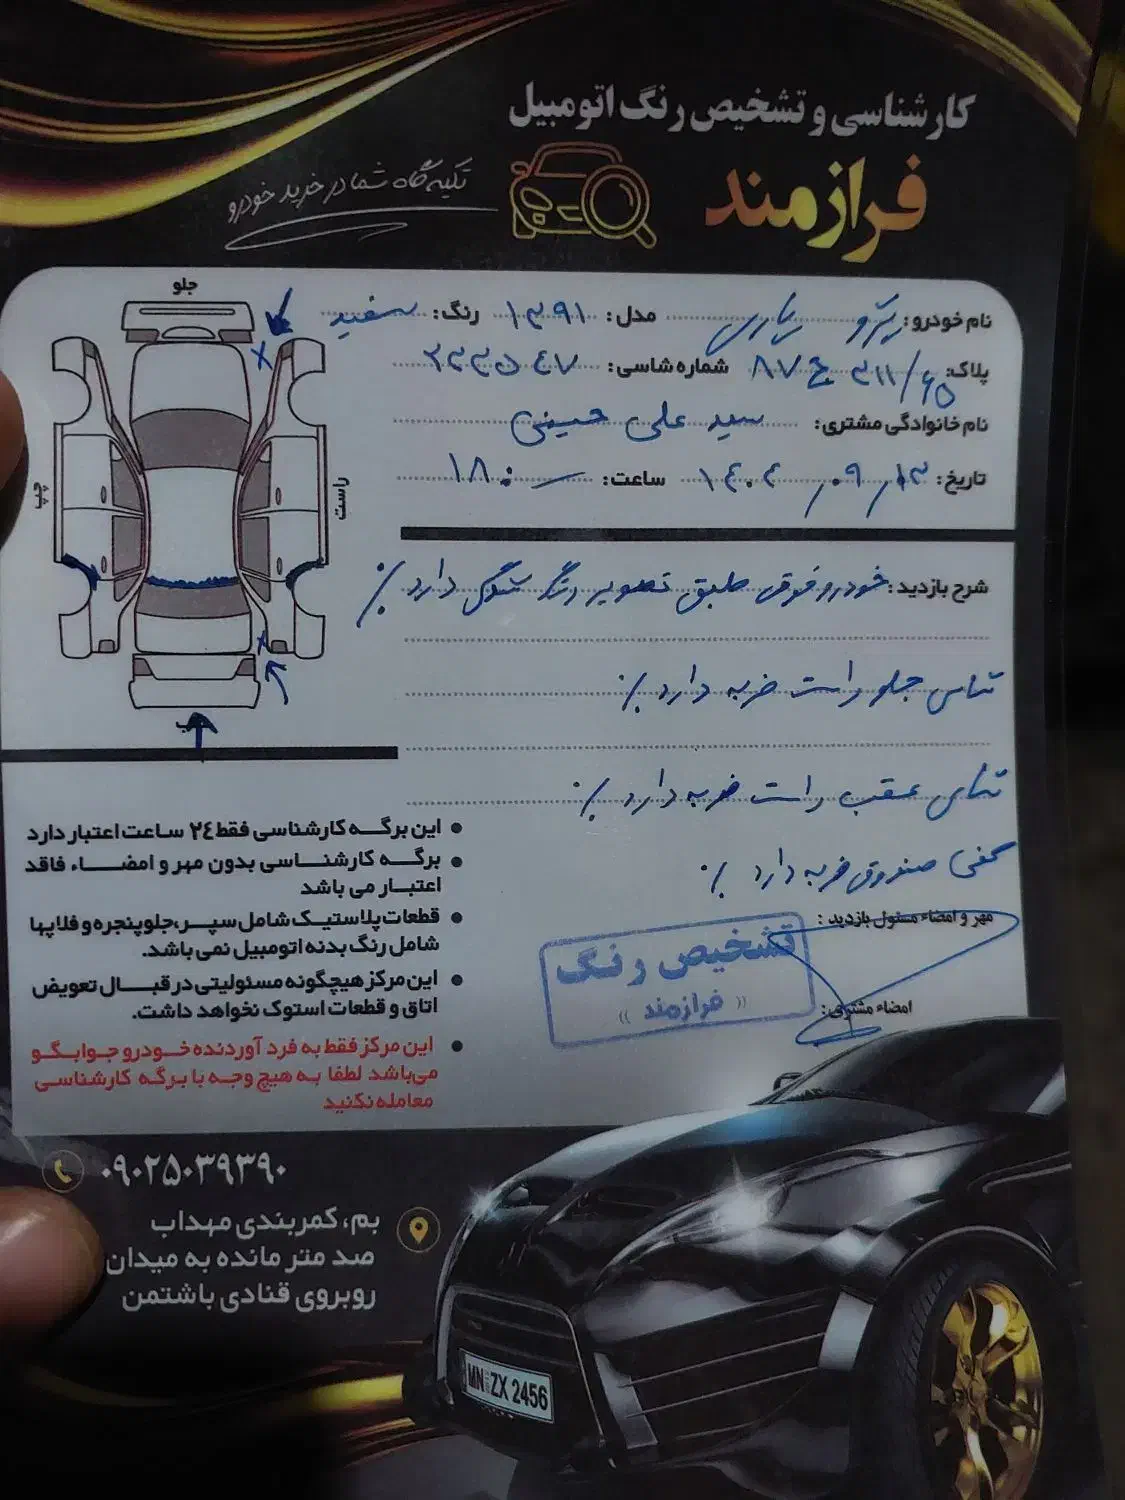 کارشناسی و تشخیص رنگ اتومبیل
فرازمند
تکیه گاه شما در خرید خودرو
جلو
چپ
راست
نام خودرو: پژو پارس مدل: ۱۳۹۱ رنگ: سفید
پلاک: ۳۱۱/۶۵ ج ۸۷ شماره شاسی:
نام خانوادگی مشتری: سید علی حسینی
تاریخ: ۱۴۰۴/۰۹/۱۳ ساعت: ۱۸:۰۰
شرح بازدید: خودرو فوق طبق تصویر رنگ شدگی دارد ./
شاسی جلو راست ضربه دارد ./
شاسی عقب راست ضربه دارد ./
کفی صندوق ضربه دارد ./
مهر و امضاء مسئول بازدید :
تشخیص رنگ
(( فرازمند ))
امضاء مشتری:
• این برگه کارشناسی فقط ۲٤ ساعت اعتبار دارد
• برگه کارشناسی بدون مهر و امضاء فاقد
اعتبار می باشد
• قطعات پلاستیک شامل سپر،جلوپنجره و فلاپها
شامل رنگ بدنه اتومبیل نمی باشد.
• این مرکز هیچگونه مسئولیتی در قبال تعویض
اتاق و قطعات استوک نخواهد داشت.
• این مرکز فقط به فرد آوردنده خودرو جوابگو
می باشد لطفا به هیچ وجه با برگه کارشناسی
معامله نکنید
۰۹۰۲۵۰۳۹۳۹۰
بم، کمربندی مهداب
صد متر مانده به میدان
روبروی قنادی باشتمن
MN ZX 2456